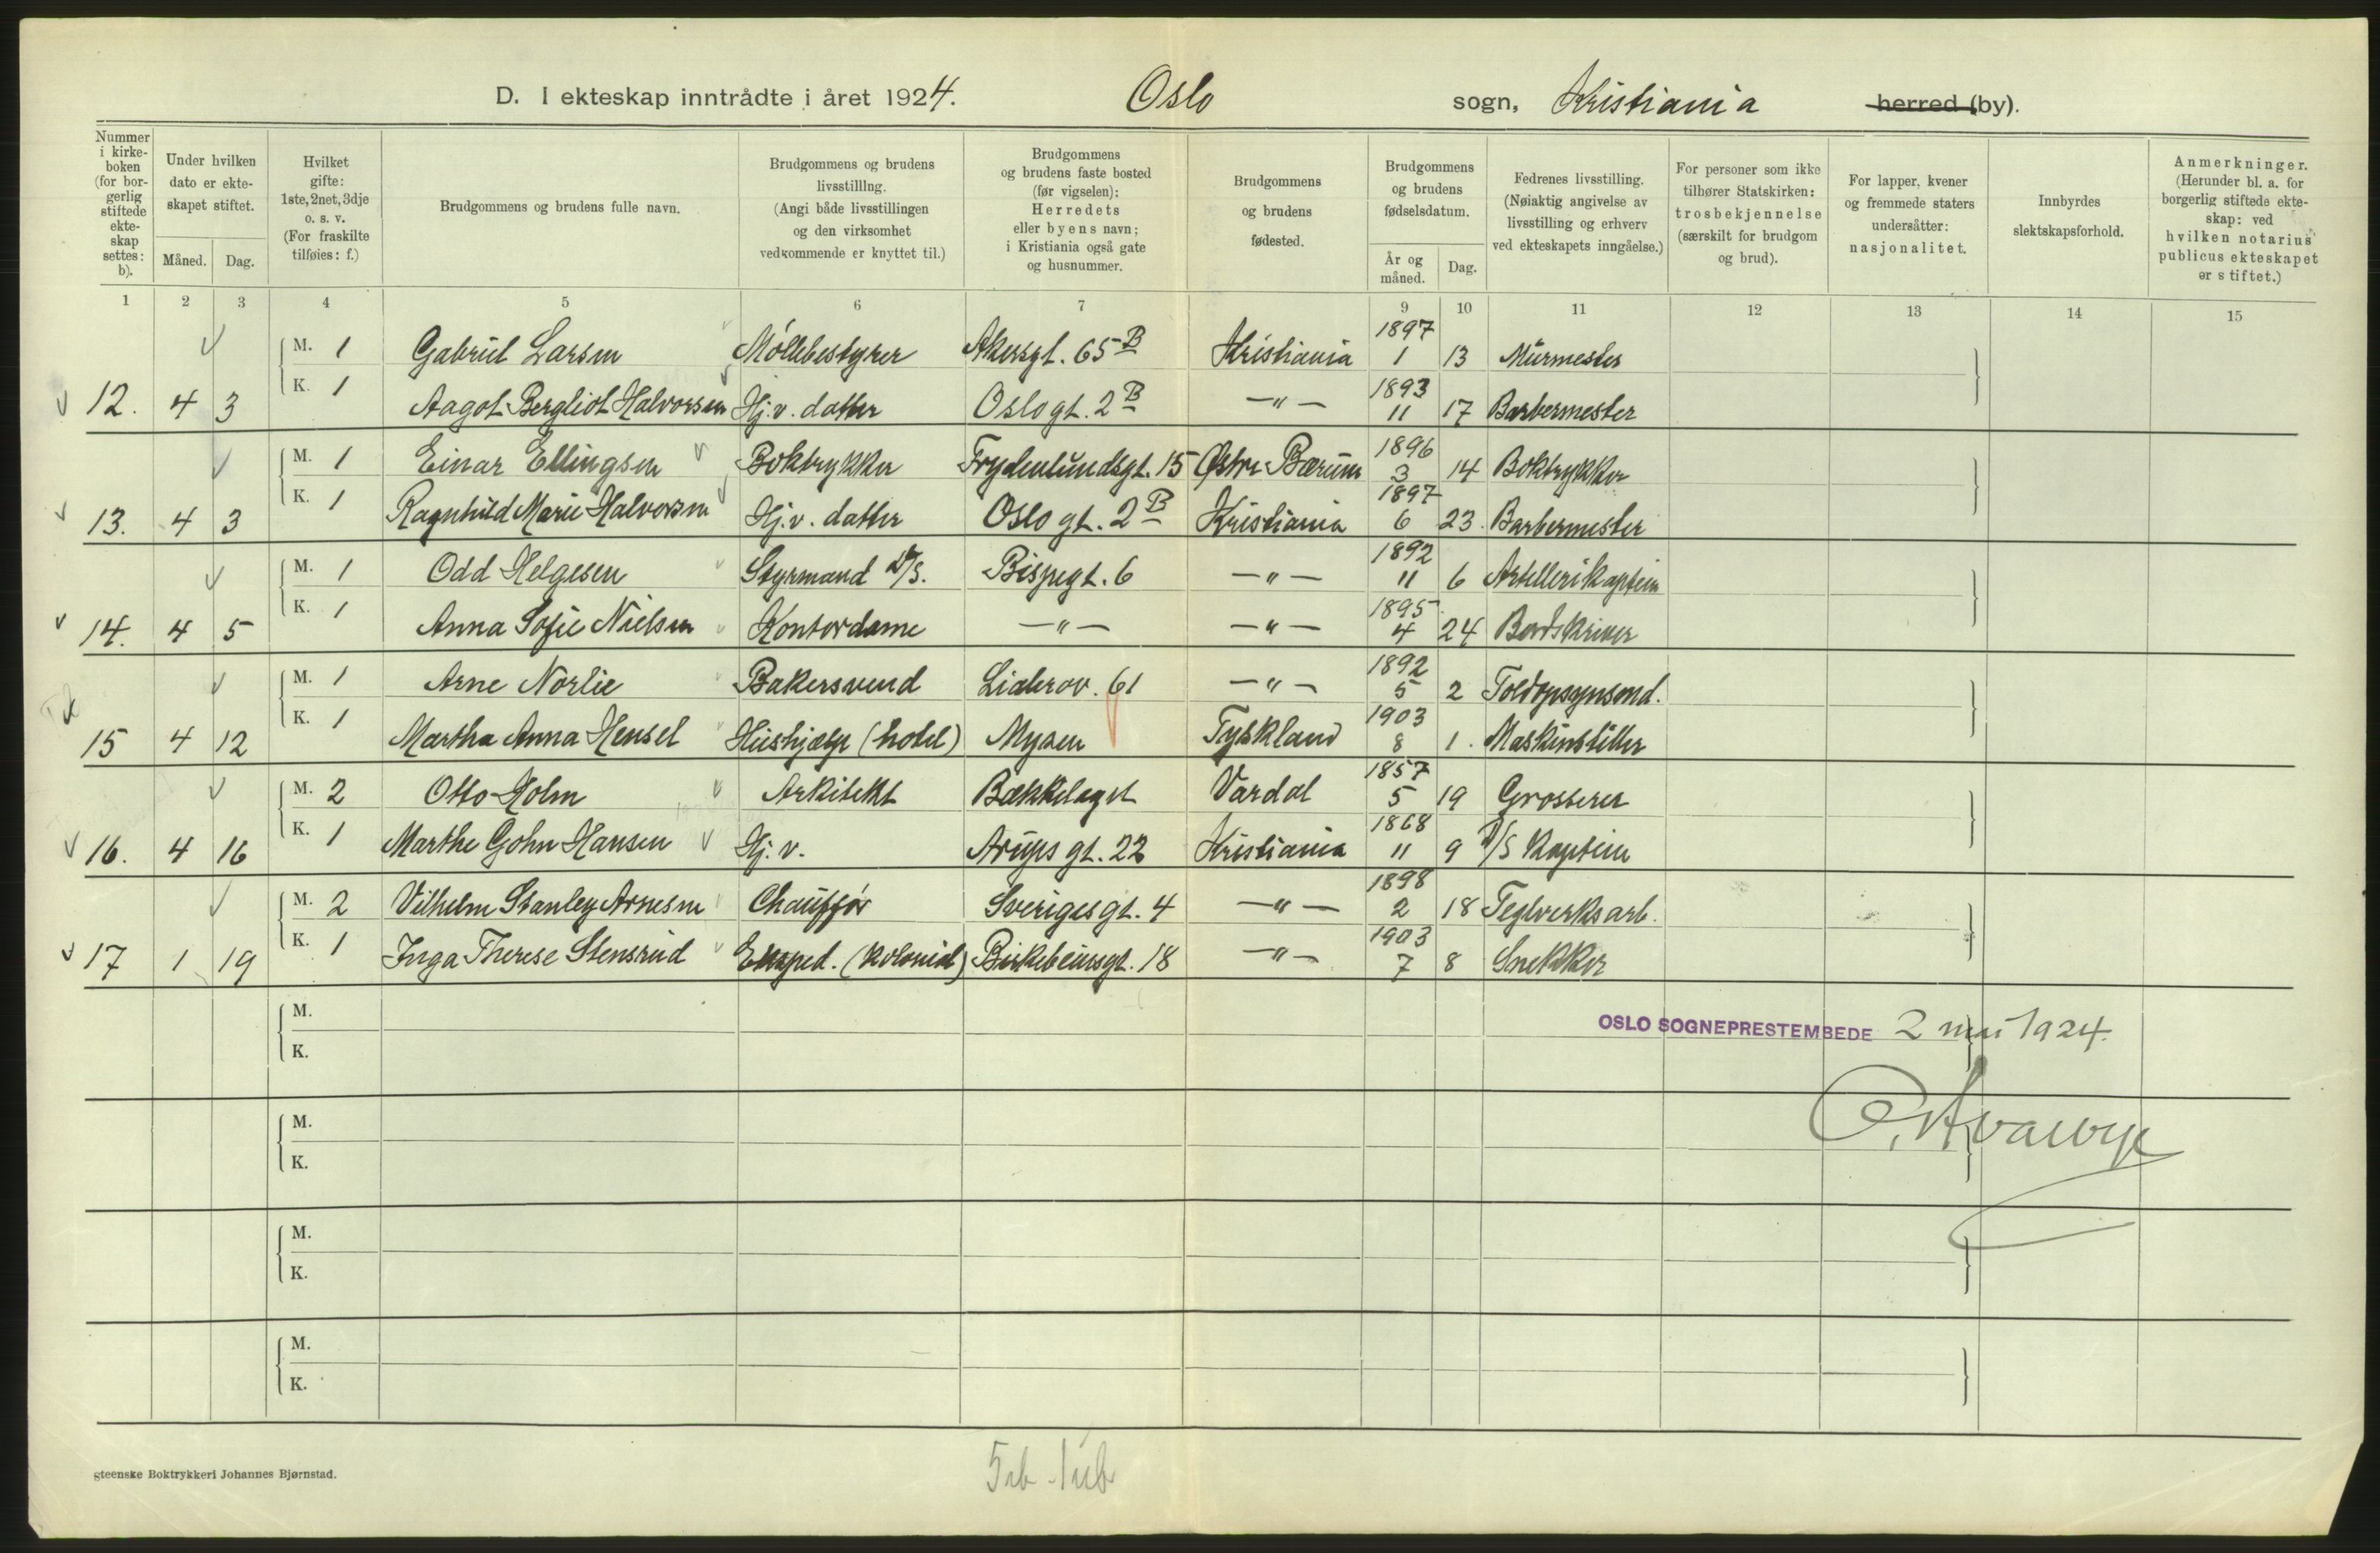 D. I ekteskap inntrådte i året 1924. Oslo sogn, Kristiania herred (by).
Nummer i kirke-boken (for bor-gerlig stiftede ekte-skap settes: b).
Under hvilken dato er ekte-skapet stiftet.
Måned. Dag.
Hvilket gifte: 1ste, 2net, 3dje o. s. v. (For fraskilte tilføies: f.)
Brudgommens og brudens fulle navn.
Brudgommens og brudens livsstilling. (Angi både livsstillingen og den virksomhet vedkommende er knyttet til.)
Brudgommens og brudens faste bosted (før vigselen): Herredets eller byens navn; i Kristiania også gate og husnummer.
Brudgommens og brudens fødested.
Brudgommens og brudens fødselsdatum.
År og måned. Dag.
Fedrenes livsstilling. (Nøiaktig angivelse av livsstilling og erhverv ved ekteskapets inngåelse.)
For personer som ikke tilhører Statskirken: trosbekjennelse (særskilt for brudgom og brud).
For lapper, kvener og fremmede staters undersåtter: nasjonalitet.
Innbyrdes slektskapsforhold.
Anmerkninger. (Herunder bl. a. for borgerlig stiftede ekte-skap: ved hvilken notarius publicus ekteskapet er stiftet.)
1 2 3 4 5 6 7 9 10 11 12 13 14 15
M. 1 Gabriel Larsen Møllebestyrer Akersgt. 65 B Kristiania 1897 1 13 Murmester
12. 4 3 K. 1 Aagot Bergliot Halvorsen Hj.v. datter Oslogt. 2 B —"— 1893 11 17 Barbermester
M. 1 Einar Ellingsen Boktrykker Frydenlundsgt. 15 Østre Bærum 1896 3 14 Boktrykker
13. 4 3 K. 1 Ragnhild Marie Halvorsen Hj.v. datter Oslo gt. 2 B Kristiania 1897 6 23. Barbermester
M. 1 Odd Helgesen Styrmand D/S. Bispegt. 6 —"— 1892 11 6 Artillerikaptein
14. 4 5 K. 1 Anna Sofie Nielsen Kontordame —"— —"— 1895 4 24
M. 1 Arne Norlie Bakersvend Liabrov. 61 —"— 1892 5 2 Toldopsynsmd.
15 4 12 K. 1 Martha Anna Hensel Hushjælp (hotel) Mysen Tyskland 1903 8 1. Maskinstiller
M. 2 Otto Holm Arkitekt Bækkelaget Vardal 1857 5 19 Grosserer
16. 4 16 K. 1 Marthe Gohn Hansen Hj. v. Arups gt. 22 Kristiania 1868 11 9 D/S Kaptein
M. 2 Vilhelm Stanley Arnesen Chauffør Sverigesgt. 4 —"— 1898 2 18 Teglverksarb.
17 1 19 K. 1 Inga Therese Stensrud Eksped. (kolonial) Birkebeinsgt. 18 —"— 1903 7 8 Snekker
M.
K.
OSLO SOGNEPRESTEMBEDE 2 mai 1924.
M.
K.
M.
K.
M.
K.
gteenske Boktrykkeri Johannes Bjørnstad.